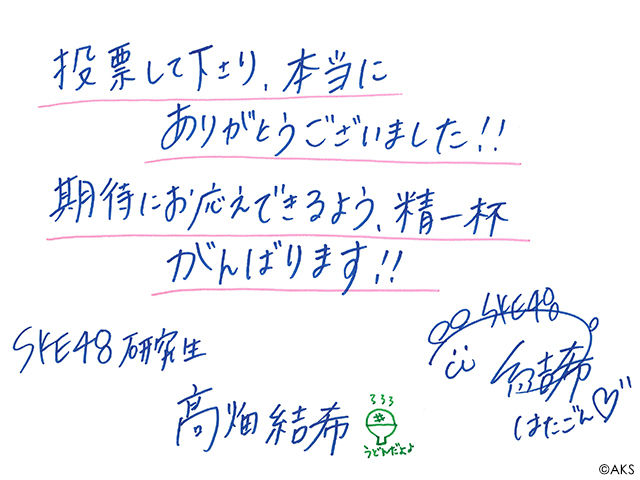 投票して下さり、本当に
ありがとうございました!!
期待にお応えできるよう、精一杯
がんばります!!
SKE48 研究生
高畑結希
るるる
うどんだよよ
SKE48
結希
はたごん♡"
©AKS